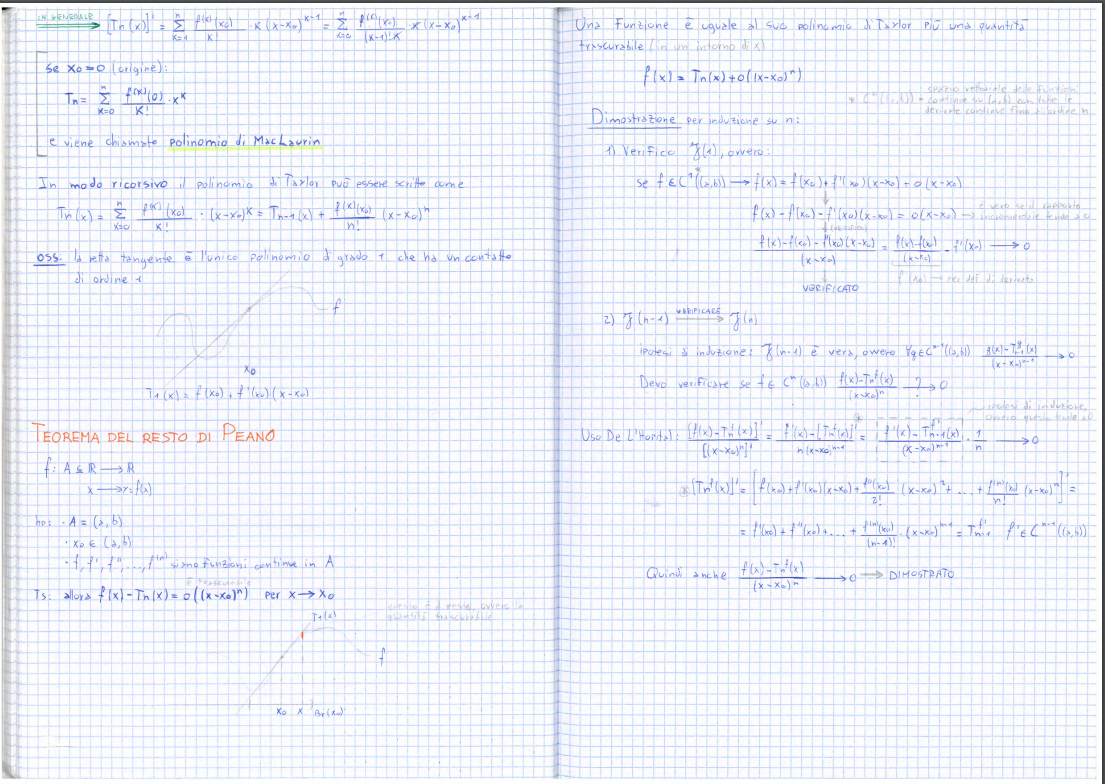 IN GENERALE → [Tn(x)]' = Σ_{K=1}^{n} f^(K)(x₀)/K! · K(x-x₀)^{K-1} = Σ_{K=0}^{n} f^(K)(x₀)/(K-1)!·K · K(x-x₀)^{K-1}
Se x₀=0 (origine):
Tn = Σ_{K=0}^{n} f^(K)(0)/K! · x^K
e viene chiamato polinomio di MacLaurin
In modo ricorsivo il polinomio di Taylor può essere scritto come
Tn(x) = Σ_{K=0}^{n} f^(K)(x₀)/K! · (x-x₀)^K = T_{n-1}(x) + f^(K)(x₀)/n! (x-x₀)^n
OSS: la retta tangente è l'unico polinomio di grado 1 che ha un contatto
di ordine 1
f
x₀
T₁(x) = f(x₀) + f'(x₀)(x-x₀)
TEOREMA DEL RESTO DI PEANO
f: A ⊆ ℝ → ℝ
x → y=f(x)
hp: · A = (a, b)
· x₀ ∈ (a, b)
· f, f', f'', ..., f^(n) siano funzioni continue in A
è trascurabile
Ts: allora f(x) - Tn(x) = o((x-x₀)^n) per x → x₀
questo è il resto, ovvero la
quantità trascurabile
T₁(x)
f
x₀ x Br(x₀)
Una funzione è uguale al suo polinomio di Taylor più una quantità
trascurabile (in un intorno di x)
f(x) = Tn(x) + o((x-x₀)^n)
* C^n((a,b)) = spazio vettoriale delle funzioni
continue su (a,b) con tutte le
derivate continue fino all'ordine n
Dimostrazione per induzione su n:
1) Verifico P(1), ovvero:
se f ∈ C¹*((a,b)) → f(x) = f(x₀) + f'(x₀)(x-x₀) + o(x-x₀)
f(x) - f(x₀) - f'(x₀)(x-x₀) = o(x-x₀) → è vero se il rapporto
incrementale tende a 0
(VERIFICO)
f(x)-f(x₀)-f'(x₀)(x-x₀)/(x-x₀) = f(x)-f(x₀)/(x-x₀) - f'(x₀) → 0
f'(x₀) → per def di derivata
VERIFICATO
2) P(n-1) VERIFICARE → P(n)
ipotesi di induzione: P(n-1) è vera, ovvero ∀g∈C^{n-1}((a,b)) g(x)-T^g_{n-1}(x)/(x-x₀)^{n-1} → 0
Devo verificare se f ∈ C^n((a,b)) f(x)-Tn^f(x)/(x-x₀)^n →? 0
ipotesi di induzione,
ovvero questo tende a 0
Uso De L'Hopital: [f(x)-Tn^f(x)]'/[(x-x₀)^n]' = f'(x)-[Tn^f(x)]'/n(x-x₀)^{n-1} =* f'(x)-T^{f'}_{n-1}(x)/(x-x₀)^{n-1} · 1/n → 0
* [Tn^f(x)]' = [f(x₀)+f'(x₀)(x-x₀)+f''(x₀)/2! (x-x₀)²+...+f^(n)(x₀)/n! (x-x₀)^n]' =
= f'(x₀)+f''(x₀)+...+f^(n)(x₀)/(n-1)! · (x-x₀)^{n-1} = T^{f'}_{n-1} f' ∈ C^{n-1}((a,b))
Quindi anche f(x)-Tn^f(x)/(x-x₀)^n → 0 → DIMOSTRATO